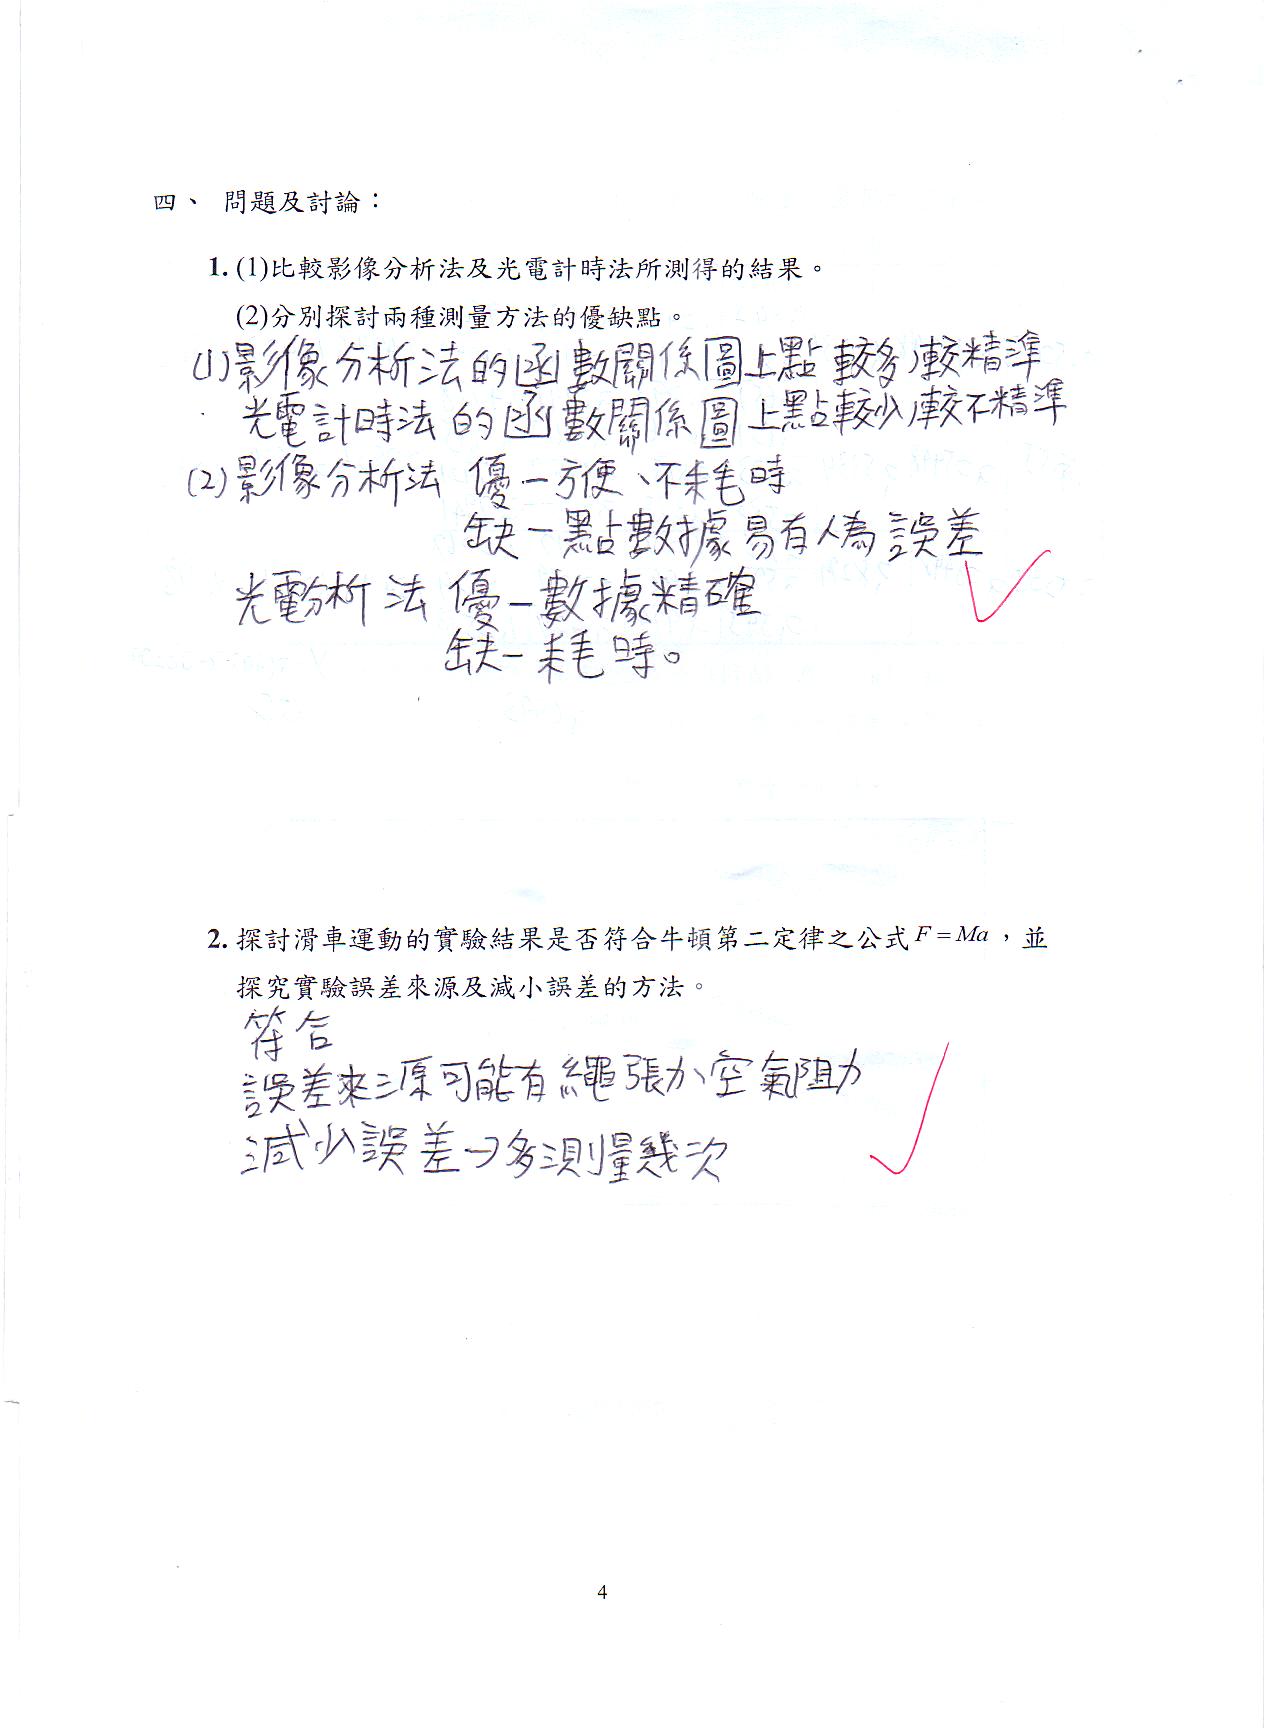 四、 問題及討論：
1. (1)比較影像分析法及光電計時法所測得的結果。
(2)分別探討兩種測量方法的優缺點。
(1)影像分析法的函數關係圖上點較多,較精準
光電計時法的函數關係圖上點較少,較不精準
(2)影像分析法 優－方便、不耗時
缺－點數據易有人為誤差
光電分析法 優－數據精確
缺－耗時。
2. 探討滑車運動的實驗結果是否符合牛頓第二定律之公式F = Ma，並
探究實驗誤差來源及減小誤差的方法。
符合
誤差來源可能有繩張力、空氣阻力
減少誤差→多測量幾次
4